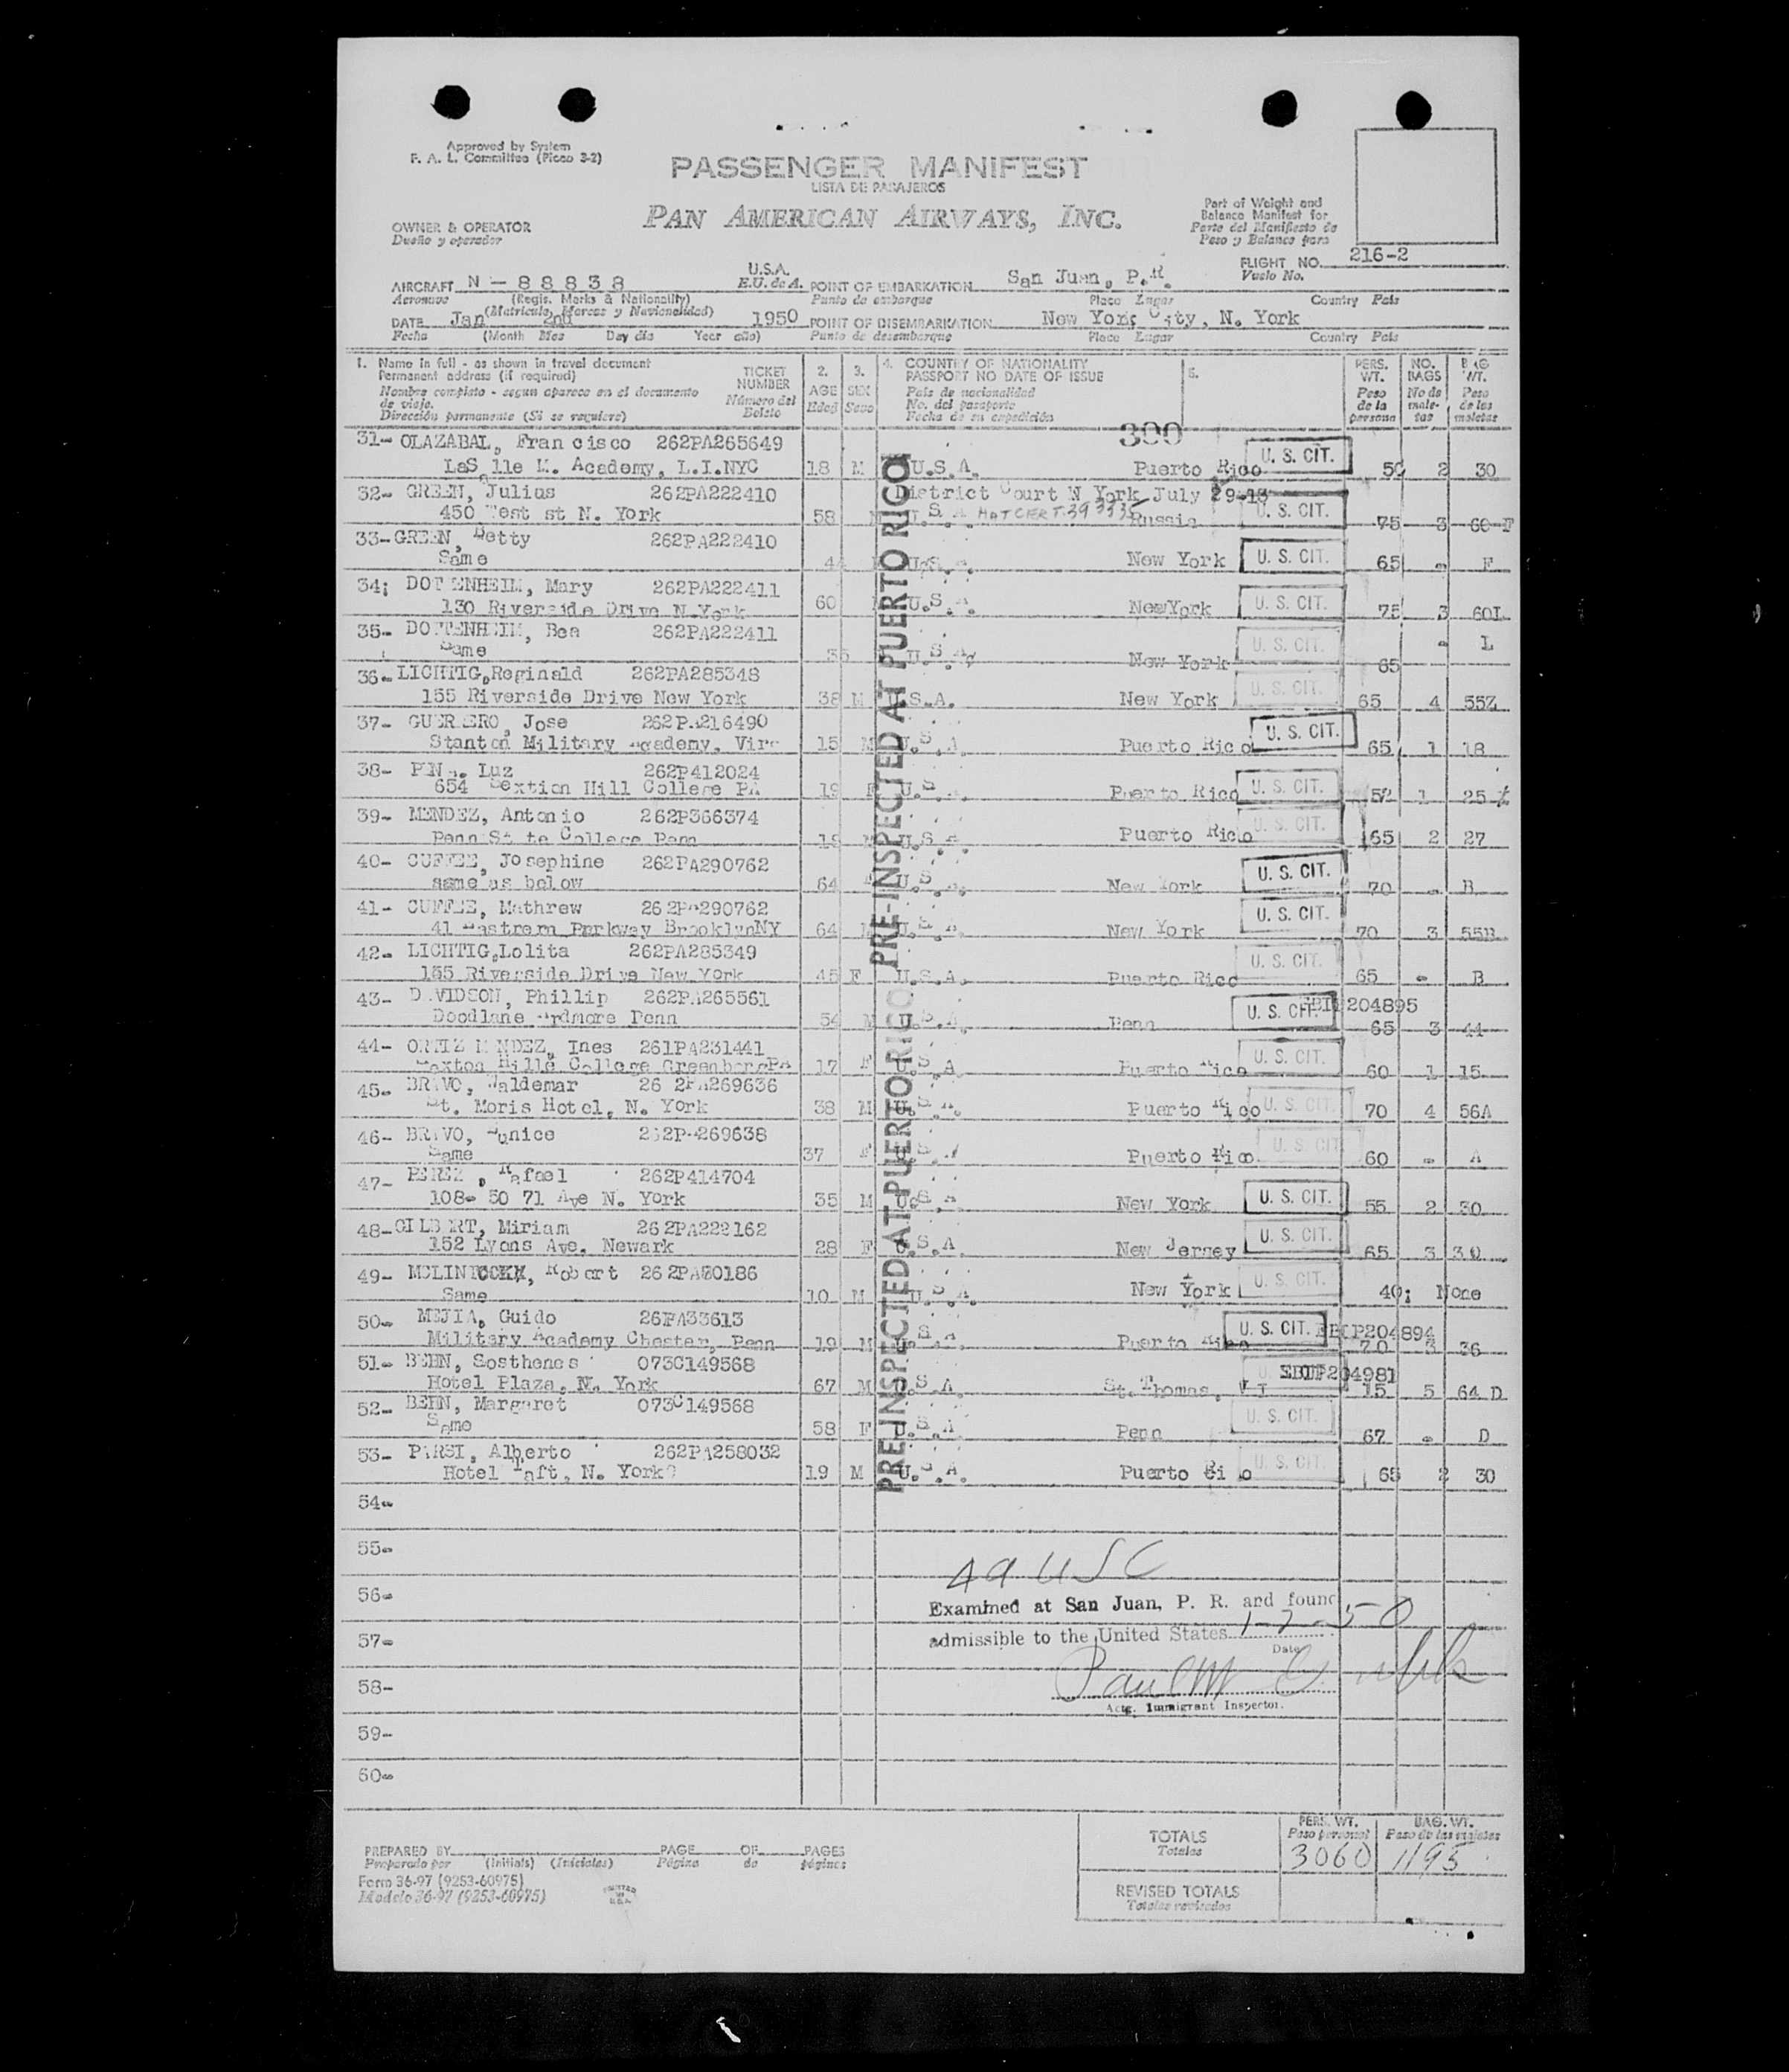 Approved by System
F. A. L. Committee (Picao 3-2)
PASSENGER MANIFEST
LISTA DE PASAJEROS
PAN AMERICAN AIRWAYS, INC.
OWNER & OPERATOR
Dueño y operador
Part of Weight and
Balance Manifest for
Parte del Manifiesto de
Peso y Balance para
FLIGHT NO. 216-2
Vuelo No.
AIRCRAFT N-88838 U.S.A. POINT OF EMBARKATION San Juan, P.R.
Aeronave (Regis. Marks & Nationality) E.U. de A. Punto de embarque Place Lugar Country País
(Matrícula, Marcas y Nacionalidad)
DATE Jan 2nd 1950 POINT OF DISEMBARKATION New York City, N. York
Fecha (Month Mes Day día Year año) Punto de desembarque Place Lugar Country País
1. Name in full - as shown in travel document
Permanent address (if required)
Nombre completo - segun aparece en el documento
de viaje.
Dirección permanente (Si se requiere)
TICKET
NUMBER
Número del
Boleto
2.
AGE
Edad
3.
SEX
Sexo
4. COUNTRY OF NATIONALITY
PASSPORT NO DATE OF ISSUE
País de nacionalidad
No. del pasaporte
Fecha de su expedición
5.
PERS.
WT.
Peso
de la
persona
NO.
BAGS
No de
male-
tas
BAG
WT.
Peso
de las
maletas
300
31- OLAZABAL, Francisco 262PA265649
LaSalle M. Academy, L.I.NYC 18 M U.S.A. Puerto Rico U. S. CIT. 50 2 30
32- GREEN, Julius 262PA222410 District Court N York July 29-13
450 West st N. York 58 M U.S.A Russia U. S. CIT. 75 3 60-F
33-GREEN, Betty 262PA222410
Same 44 U.S.A. New York U. S. CIT. 65 - F
34; DOTTENHEIM, Mary 262PA222411
130 Riverside Drive N York 60 U.S.A. NewYork U. S. CIT. 75 3 60L
35- DOTTENHEIM, Bea 262PA222411
Same 35 U.S.A. New York U. S. CIT. 65 - L
36- LICHTIG,Reginald 262PA285348
155 Riverside Drive New York 38 M U.S.A. New York U. S. CIT. 65 4 55Z
37- GUERRERO, Jose 262PA216490
Stanton Military Academy, Virg 15 M U.S.A. Puerto Rico U. S. CIT. 65 1 18
38- Luz 262P412024
654 Sextion Hill College PA 19 F U.S.A. Puerto Rico U. S. CIT. 52 1 25
39- MENDEZ, Antonio 262P366374
Penn State College Penn 19 M U.S.A Puerto Rico U. S. CIT. 65 2 27
40- CUFFEE, Josephine 262PA290762
same as below 64 F U.S.A. New York U. S. CIT. 70 - B
41- CUFFEE, Mathrew 262PA290762
41 Eastrern Parkway BrooklynNY 64 M U.S.A. New York U. S. CIT. 70 3 55B
42- LICHTIG,Lolita 262PA285349
155 Riverside Drive New York 45 F U.S.A. Puerto Rico U. S. CIT. 65 - B
43- DAVIDSON, Phillip 262PA265561 204895
Doodlane Ardmore Penn 54 M U.S.A. Penn U. S. CIT. 65 3 44
44- ORTIZ MENDEZ, Ines 261PA231441
Sexton Hills College GreenbergPA 17 F U.S.A Puerto Rico U. S. CIT. 60 1 15
45- BRAVO, Waldemar 262PA269636
St. Moris Hotel, N. York 38 M U.S.A. Puerto Rico U. S. CIT. 70 4 56A
46- BRAVO, Eunice 262PA269638
Same 37 F U.S.A Puerto Rico U. S. CIT 60 - A
47- PEREZ, Rafael 262P414704
108- 50 71 Ave N. York 35 M U.S.A New York U. S. CIT. 55 2 30
48-GILBERT, Miriam 262PA222162
152 Lyons Ave, Newark 28 F U.S.A. New Jersey U. S. CIT. 65 3 30
49- Robert
Same 10 M U.S.A. New York U. S. CIT. 40; None
50- MEJIA, Guido 26PA33613
Military Academy Chester, Penn 19 M U.S.A Puerto Rico U. S. CIT. P204894 70 3 36
51- BEHN, Sosthenes 073C149568
Hotel Plaza, N. York 67 M U.S.A. St. Thomas, VI 204981 15 5 64 D
52- BEHN, Margaret 073C149568
Same 58 F U.S.A. Penn U. S. CIT. 67 - D
53- PARSI, Alberto 262PA258032
Hotel Taft, N. York 19 M U.S.A. Puerto Rico U. S. CIT. 65 2 30
PRE-INSPECTED AT PUERTO RICO
PRE-INSPECTED AT PUERTO RICO
54-
55-
49 USC
56-
Examined at San Juan, P. R. and found
57-
admissible to the United States 1-2-50
Date
58-
Actg. Immigrant Inspector.
59-
60-
PREPARED BY PAGE OF PAGES
Preparado por (Initials) (Iniciales) Página de páginas
Form 36-97 (9253-60975)
Modelo 36-97 (9253-60975)
PRINTED
IN
U.S.A.
TOTALS
Totales
PERS. WT.
Peso personal
3060
BAG. WT.
Peso de las maletas
1195
REVISED TOTALS
Totales revisados